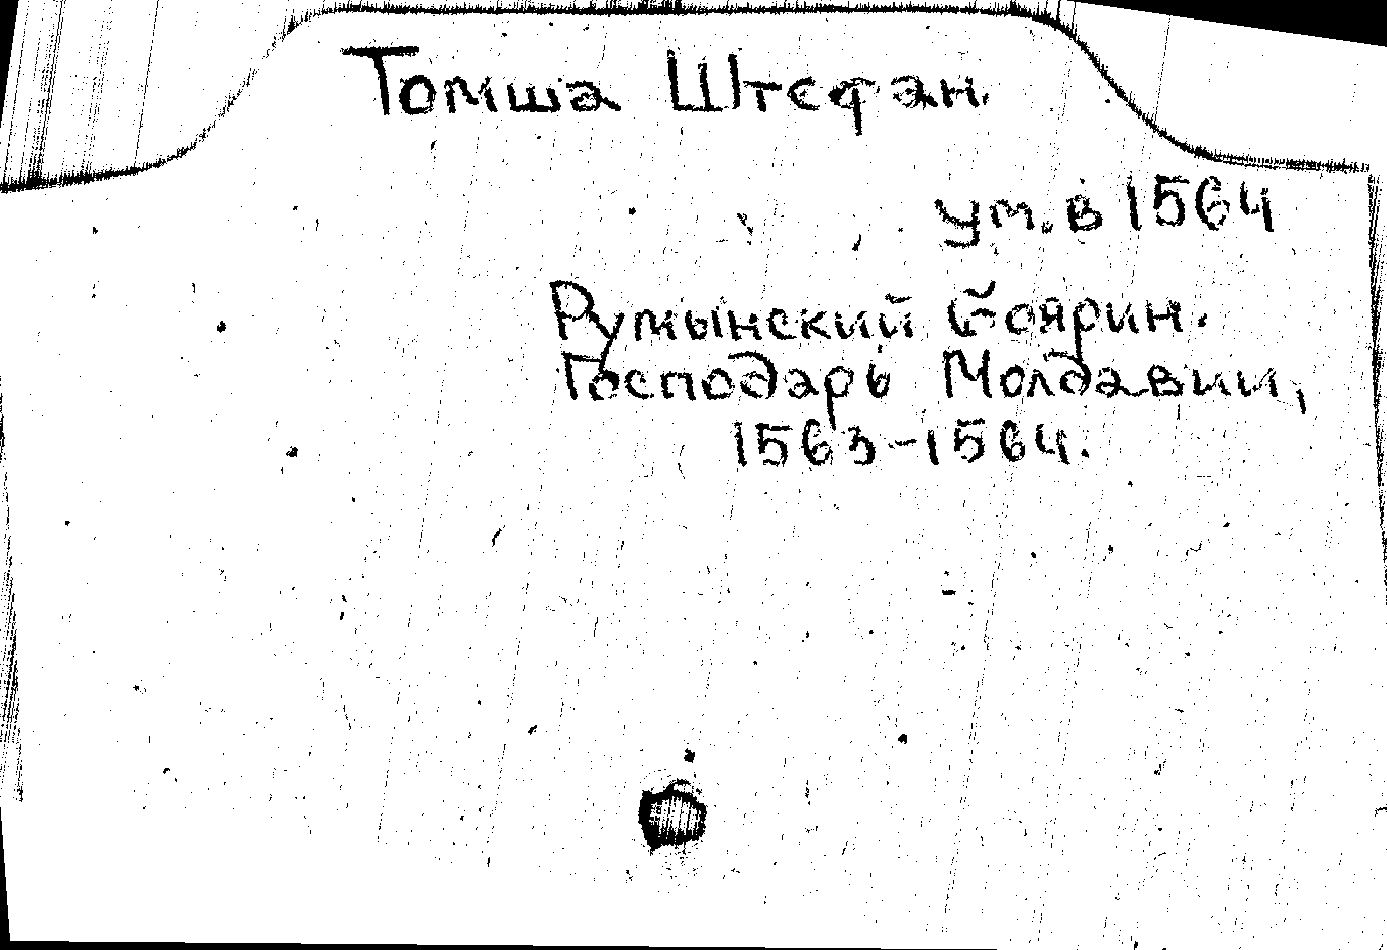 Томша Штефан.
ум. в 1564
Румынский боярин.
Господарь Молдавии,
1563-1564.